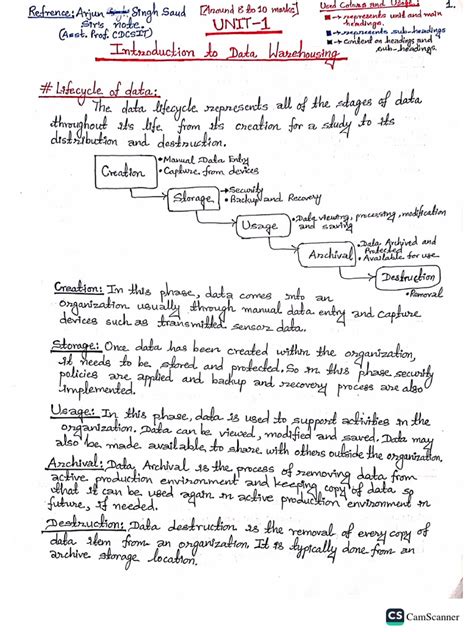 Refrence: Arjun Singh Saud
Sir's note.
(Asst. Prof. CDCSIT)
[Around 8 to 10 marks]
UNIT-1
Used Colors and Usage:
→ represents unit and main headings.
→ represents sub-headings
→ Content on headings and sub-headings.
1.
Introduction to Data Warehousing
# Lifecycle of data:
The data lifecycle represents all of the stages of data
throughout its life from its creation for a study to its
distribution and destruction.
Creation
•Manual Data Entry
•Capture from devices
Storage
→Security
•Backup and Recovery
Usage
•Data viewing, processing, modification
and saving
Archival
•Data Archived and
Protected
•Available for use
Destruction
•Removal
Creation: In this phase, data comes into an
organization usually through manual data entry and capture
devices such as transmitted sensor data.
Storage: Once data has been created within the organization,
it needs to be stored and protected. So in this phase security
policies are applied and backup and recovery process are also
implemented.
Usage: In this phase, data is used to support activities in the
organization. Data can be viewed, modified and saved. Data may
also be made available, to share with others outside the organization.
Archival: Data Archival is the process of removing data from
active production environment and keeping copy of data so
that it can be used again in active production environment in
future, if needed.
Destruction: Data destruction is the removal of every copy of
data item from an organization. It is typically done from an
archive storage location.
CS CamScanner